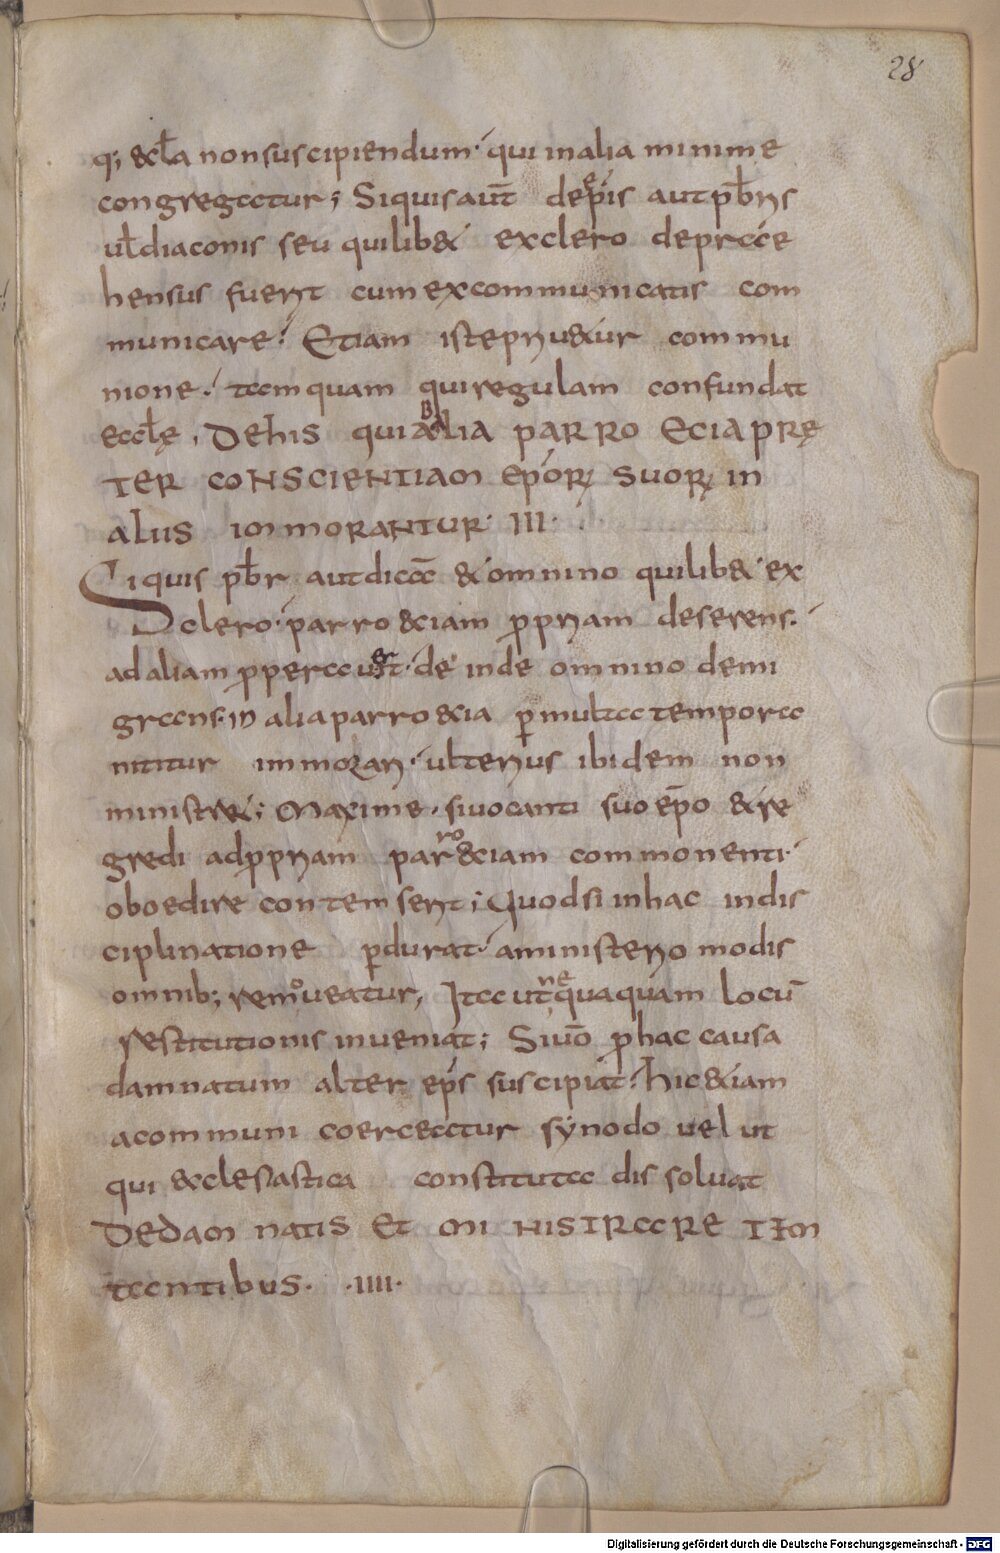 28
q; &cl̄a non suscipiendum· qui in alia minime
congregetur; Siquis aut̄ de epis aut pb̄ris
ul̄ diaconis seu quilib& ex clero depraee
hensus fuerit cum excommunicatis com
municare· Etiam iste priu&ur commu
nione· tamquam qui regulam confundat
eccl̄ę, DEHIS QUI ALIA PARROECIA PRĘ
TER CONSCIENTIAM EPORŲ SUORŲ IN
ALIIS IMMORANTUR· III·
Siquis pb̄r aut diac̄ & omnino quilib& ex
clero· parro&ciam propriam deserens·
ad aliam properauerit· de inde omnino demi
grans· in alia parro&cia per multa tempora
nititur immorari· ulterius ibidem non
ministr&; Maxime· si uocanti suo ep̄o & re
gredi ad propriam parro&ciam commonenti·
oboedire contemserit; Quodsi in hac indis
ciplinatione perdurat· a ministerio modis
omnib; remoueatur, Ita ut nequaquam locū
restitutionis inueniat; Siuō pro hac causa
damnatum alter ep̄s suscipiat· hic &iam
a communi coerceatur synodo uelut
qui &clesiastica constituta dissoluat
DE DAMNATIS ET MINISTRARE TEM
TANTIBUS· ·IIII·
Digitalisierung gefördert durch die Deutsche Forschungsgemeinschaft - DFG